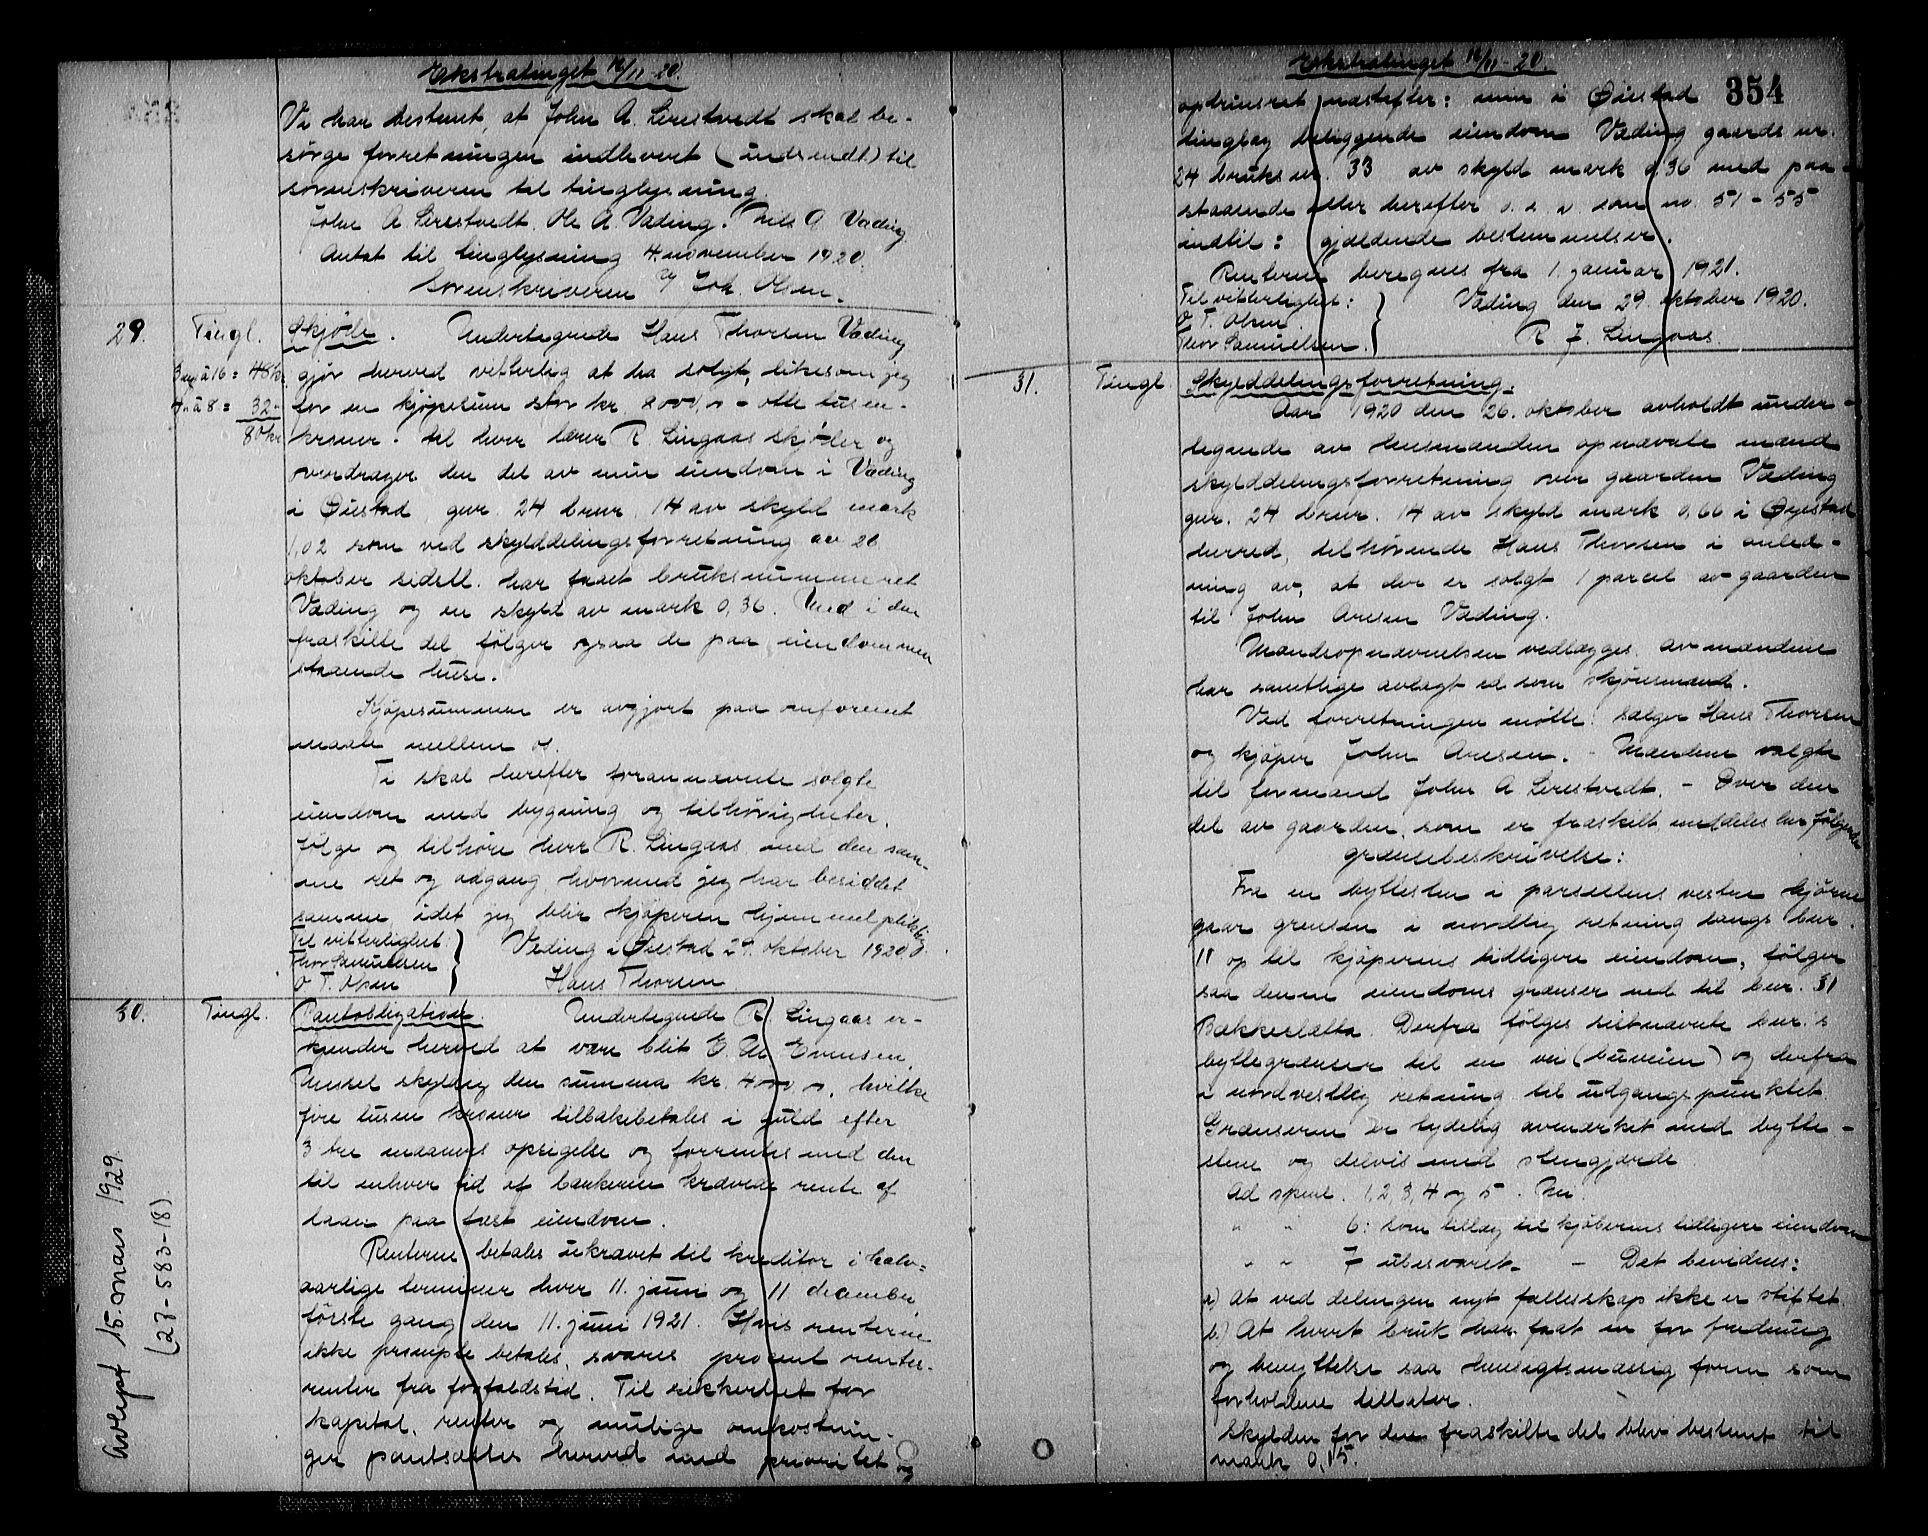 Ekstratinget 16/11-20.
Vi har bestemt, at John A. Lerestvedt skal be-
sørge forretningen indlevert (indsendt) til
sorenskriveren til tinglysning.
John A. Lerestvedt. Ole A. Væding. Nils A Væding
Antat til tinglysning 4. november 1920.
Sorenskriveren Joh. Olsen.
29. Tingl. Skjøte. Undertegnede Hans Thorsen Væding
3 à 16 = 48 kr. gjør herved vitterlig at ha solgt, likesom jeg
4 à 8 = 32 - for en kjøpesum stor kr 8000,00 - otte tusen
80 kr kroner - til herr R. Lingaas skjøter og
overdrager den del av min eiendom i Væding
i Øiestad gnr. 24 brnr. 14 av skyld mark
1,02 som ved skylddelingsforretning av 26
oktober sidstl. har faaet bruksnummeret
Væding og en skyld av mark 0,36. Med i den
fraskilte del følger ogsaa de paa eiendommen
staaende huse.
Kjøpesummen er avgjort paa omforenet
maate mellem os.
Ti skal herefter forannævnte solgte
eiendom med bygning og tilhørigheter,
følge og tilhøre herr R. Lingaas med den sam-
me ret og adgang hvormed jeg har besiddet
samme, idet jeg blir kjøperen hjemmelpliktig
Til vitterlighet: Væding i Øiestad 29. oktober 1920.
Thor Samuelsen
O T. Olsen Hans Thorsen
30. Tingl. Pantobligation. Undertegnede R. Lingaas er-
kjender herved at være blit E. M. Evensen
skyldig den summa kr. 4000,00, hvilke
fire tusen kroner tilbakebetales i guld efter
3 tre maaneds opsigelse og forrentes med den
til enhver tid af bankerne krævede rente af
laan paa fast eiendom.
Renterne betales ukrævet til kreditor i halv=
aarlige terminer hver 11. juni og 11 december
første gang den 11. juni 1921. Hvis renterne
ikke prompte betales, svares procent renters-
renter fra forfaldstid. Til sikkerhet for
kapital, renter og mulige omkostnin-
ger pantsættes herved med prioritet og
Avlyst 15 mars 1929.
(27-583-18)
Ekstratinget 16/11-20.
354
opträdsret næstefter: min i Øiestad
tinglag beliggende eiendom Væding gaards nr.
24 bruks nr. 33 av skyld mark 0,36 med paa-
staaende eller herefter o. s. v. som no. 51-55
indtil: gjældende bestemmelser.
Renterne beregnes fra 1. januar 1921.
Til vitterlighet: Væding den 29. oktober 1920.
O T. Olsen.
Thor Samuelsen. R. J. Lingaas
31. Tingl. Skylddelingsforretning.
Aar 1920 den 26. oktober avholdt under-
tegnede av lensmanden opnævnte mænd
skylddelingsforretning over gaarden Væding
gnr. 24 brnr. 14 av skyld mark 0,66 i Øyestad
herred, tilhørende Hans Thorsen i anled-
ning av, at der er solgt 1 parcel av gaarden
til John Aresen Væding.
Mændsopnævnelsen vedlægges. Av mændene
har samtlige avlagt ed som skjønsmænd.
Ved forretningen møtte: sælger Hans Thorsen
og kjøper John Aresen. - Mændene valgte
til formand John A Lerestvedt. - Over den
del av gaarden, som er fraskilt meddeles her følgende
grænsebeskrivelse:
Fra en byttesten i parsellens vestre hjørne
gaar grensen i nordlig retning langs bnr.
11 op til kjøperens tidligere eiendom, følger
saa denne eiendoms grænser ned til bnr. 31
Bakkesletta. Derfra følges sistnævnte bnr.'s
byttegrænser til en vei (buveien) og derfra
i nordvestlig retning til utgangspunktet.
Grænserne er tydelig avmerket med bytte-
stene og delvis med stengjærde.
Ad spml. 1, 2, 3, 4 og 5. Nei.
" " 6: som tillæg til kjøberens tidligere eiendom
" " 7 ubesvaret. - Det bevidnes:
a) At ved delingen nyt fællesskap ikke er stiftet.
b) At hvert bruk har faat en for fredning
og benyttelse saa hensigtsmæssig form som
forholdene tillater.
Skylden for den fraskilte del blev bestemt til
mark 0,15.